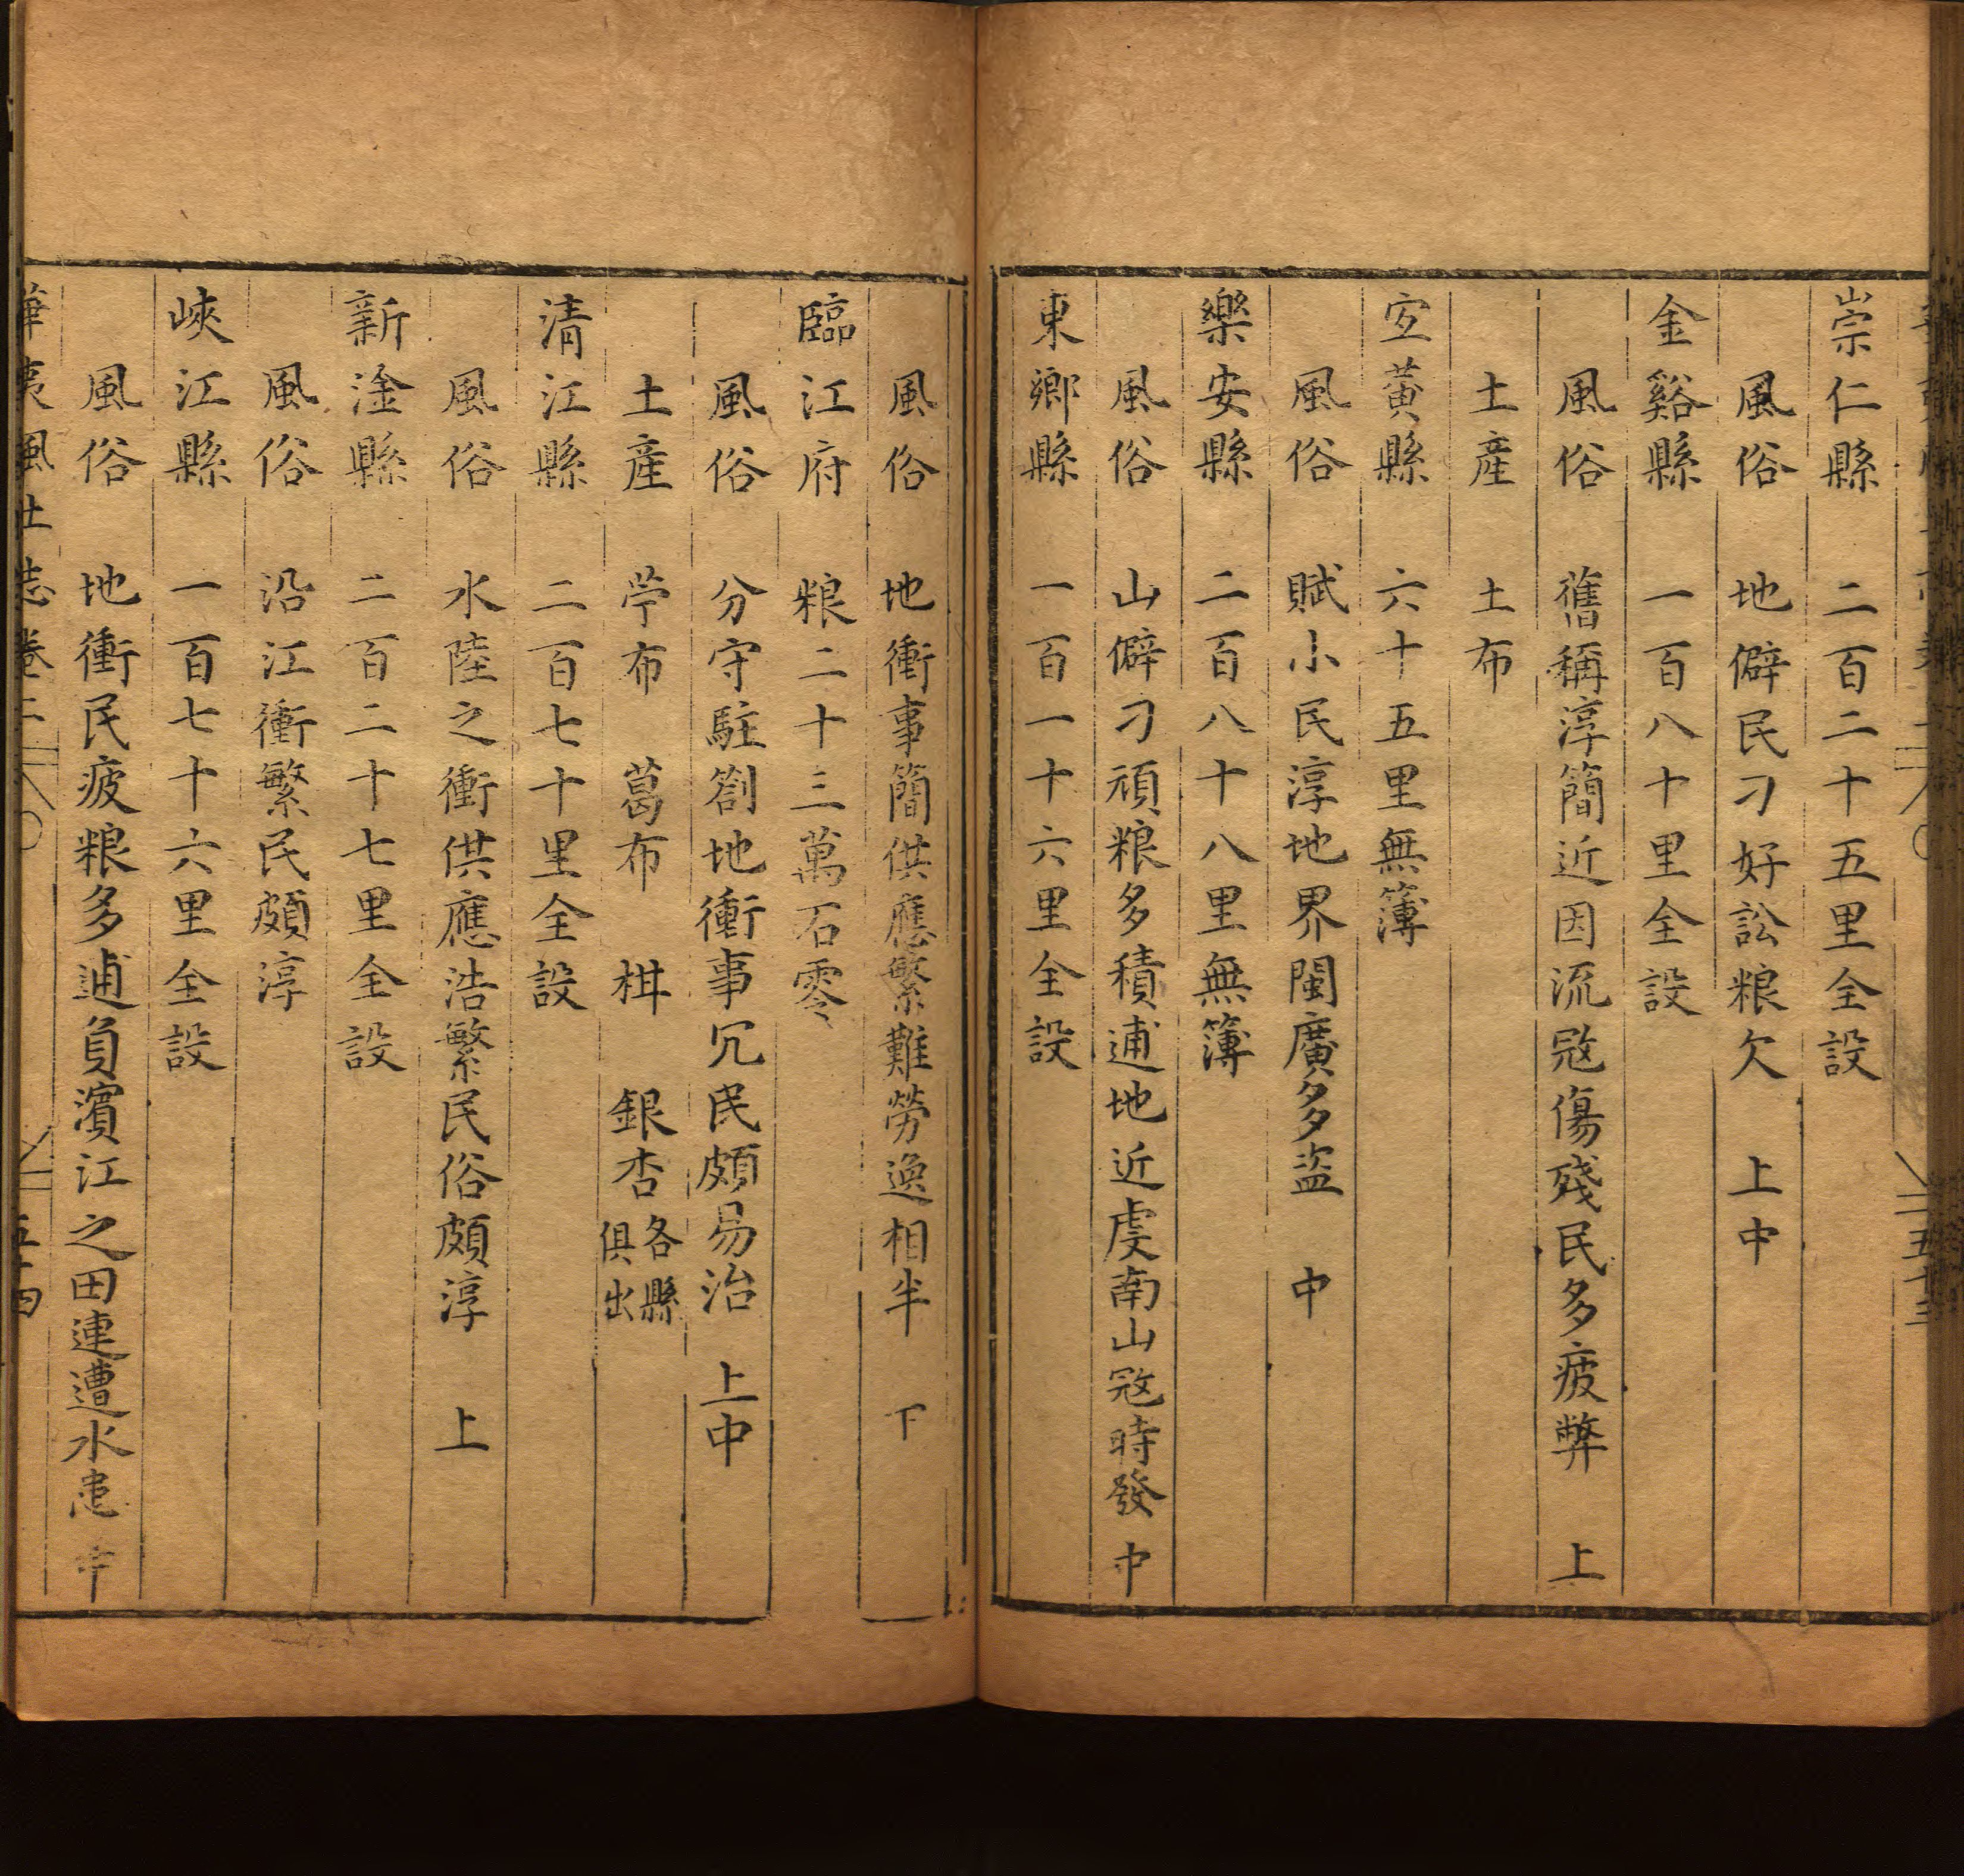 崇仁縣　二百二十五里全設
風俗　地僻民刁好訟粮欠　上中
金谿縣　一百八十里全設
風俗　舊稱淳簡近因流㓂傷殘民多疲弊　上
土產　土布
宜黃縣　六十五里無簿
風俗　賦小民淳地界閩廣多盗　中
樂安縣　二百八十八里無簿
風俗　山僻刁頑粮多積逋地近虔南山㓂時發　中
東鄉縣　一百一十六里全設
五十三
風俗　地衝事簡供應繁難勞逸相半　下
臨江府　粮二十三萬石零
風俗　分守駐劄地衝事冗民頗易治　上中
土產　苧布　葛布　柑　銀杏各縣俱出
清江縣　二百七十里全設
風俗　水陸之衝供應浩繁民俗頗淳　上
新淦縣　二百二十七里全設
風俗　沿江衝繁民頗淳
峽江縣　一百七十六里全設
風俗　地衝民疲粮多逋負濱江之田連遭水患　中
華夷風土志卷二　五十四